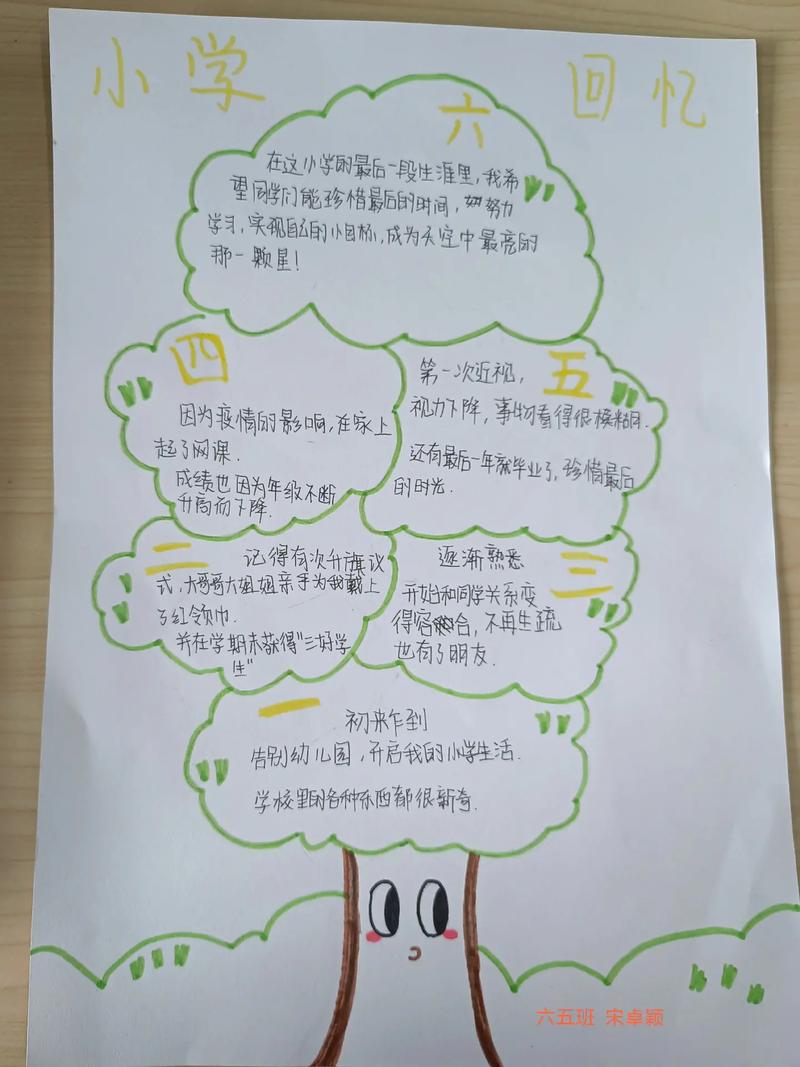 小学 回忆
六
在这小学的最后一段生涯里,我希
望同学们能珍惜最后的时间,努力
学习,实现自己的小目标,成为天空中最亮的
那一颗星!
四
因为疫情的影响,在家上
起了网课.
成绩也因为年级不断
升高而下降.
五
第一次近视,
视力下降,事物看得很模糊.
还有最后一年就毕业了,珍惜最后
的时光.
二
记得有次升旗仪
式,大哥哥大姐姐亲手为我戴上
了红领巾.
并在学期末获得"三好学
生"
三
逐渐熟悉
开始和同学关系变
得容合,不再生疏
也有了朋友.
一
初来乍到
告别幼儿园,开启我的小学生活.
学校里的各种东西都很新奇.
六五班 宋卓颖